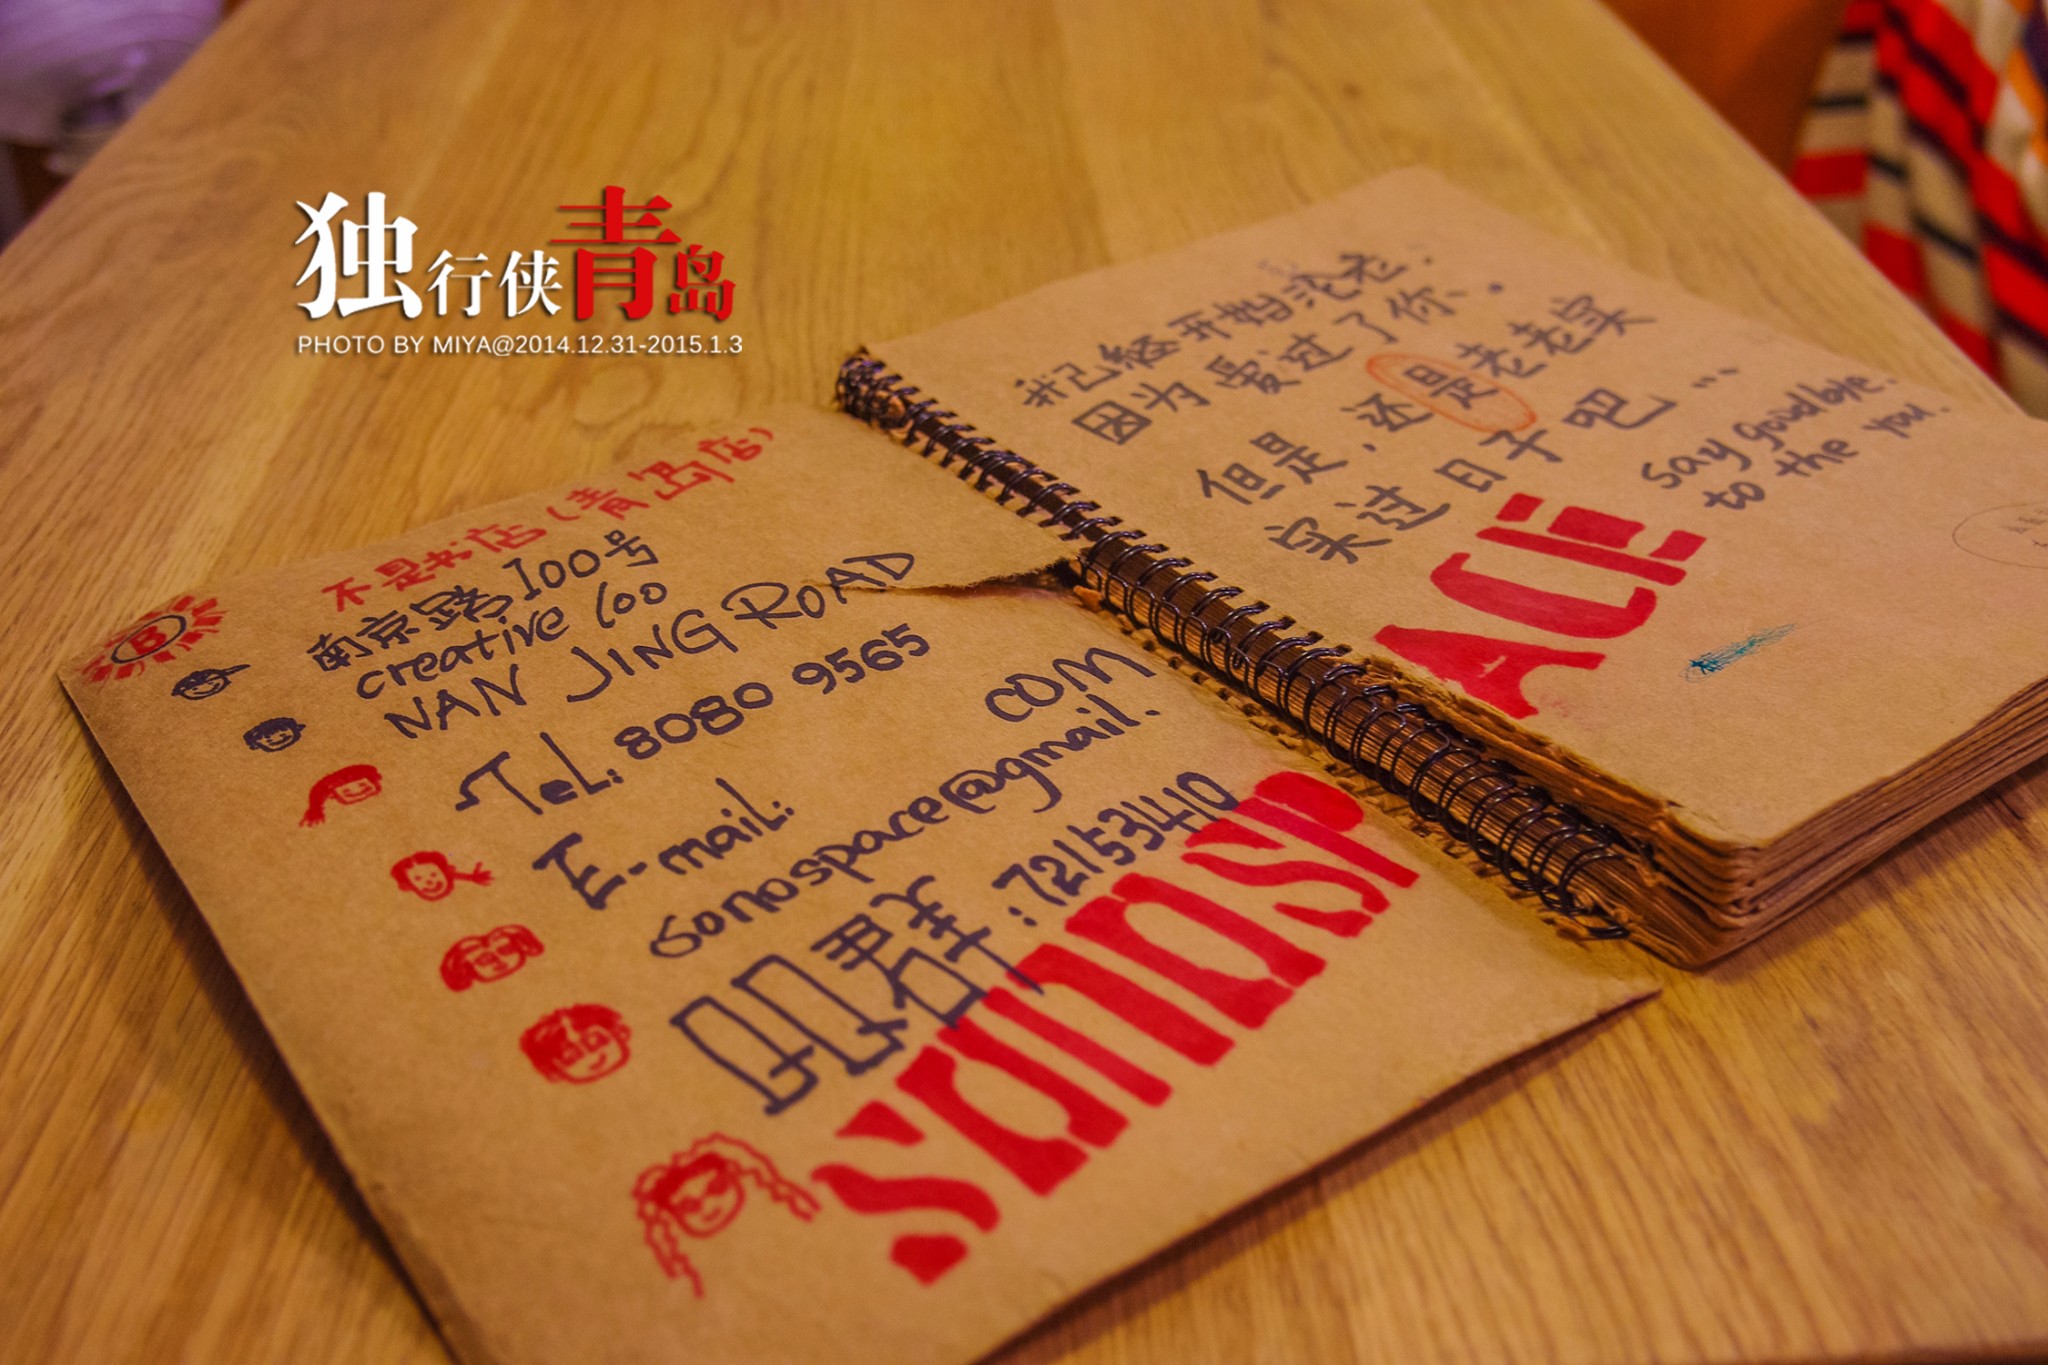 独行侠青岛
PHOTO BY MIYA@2014.12.31-2015.1.3
不是书店(青岛店)
B
南京路100号
creative 100
NAN JING ROAD
Tel: 8080 9565
E-mail:
sonospace@gmail.
com
:72153410
我已经开始沧老.
因为爱过了你。
但是,还是老老实
实过日子吧…
say goodbye.
to the you.
ACE